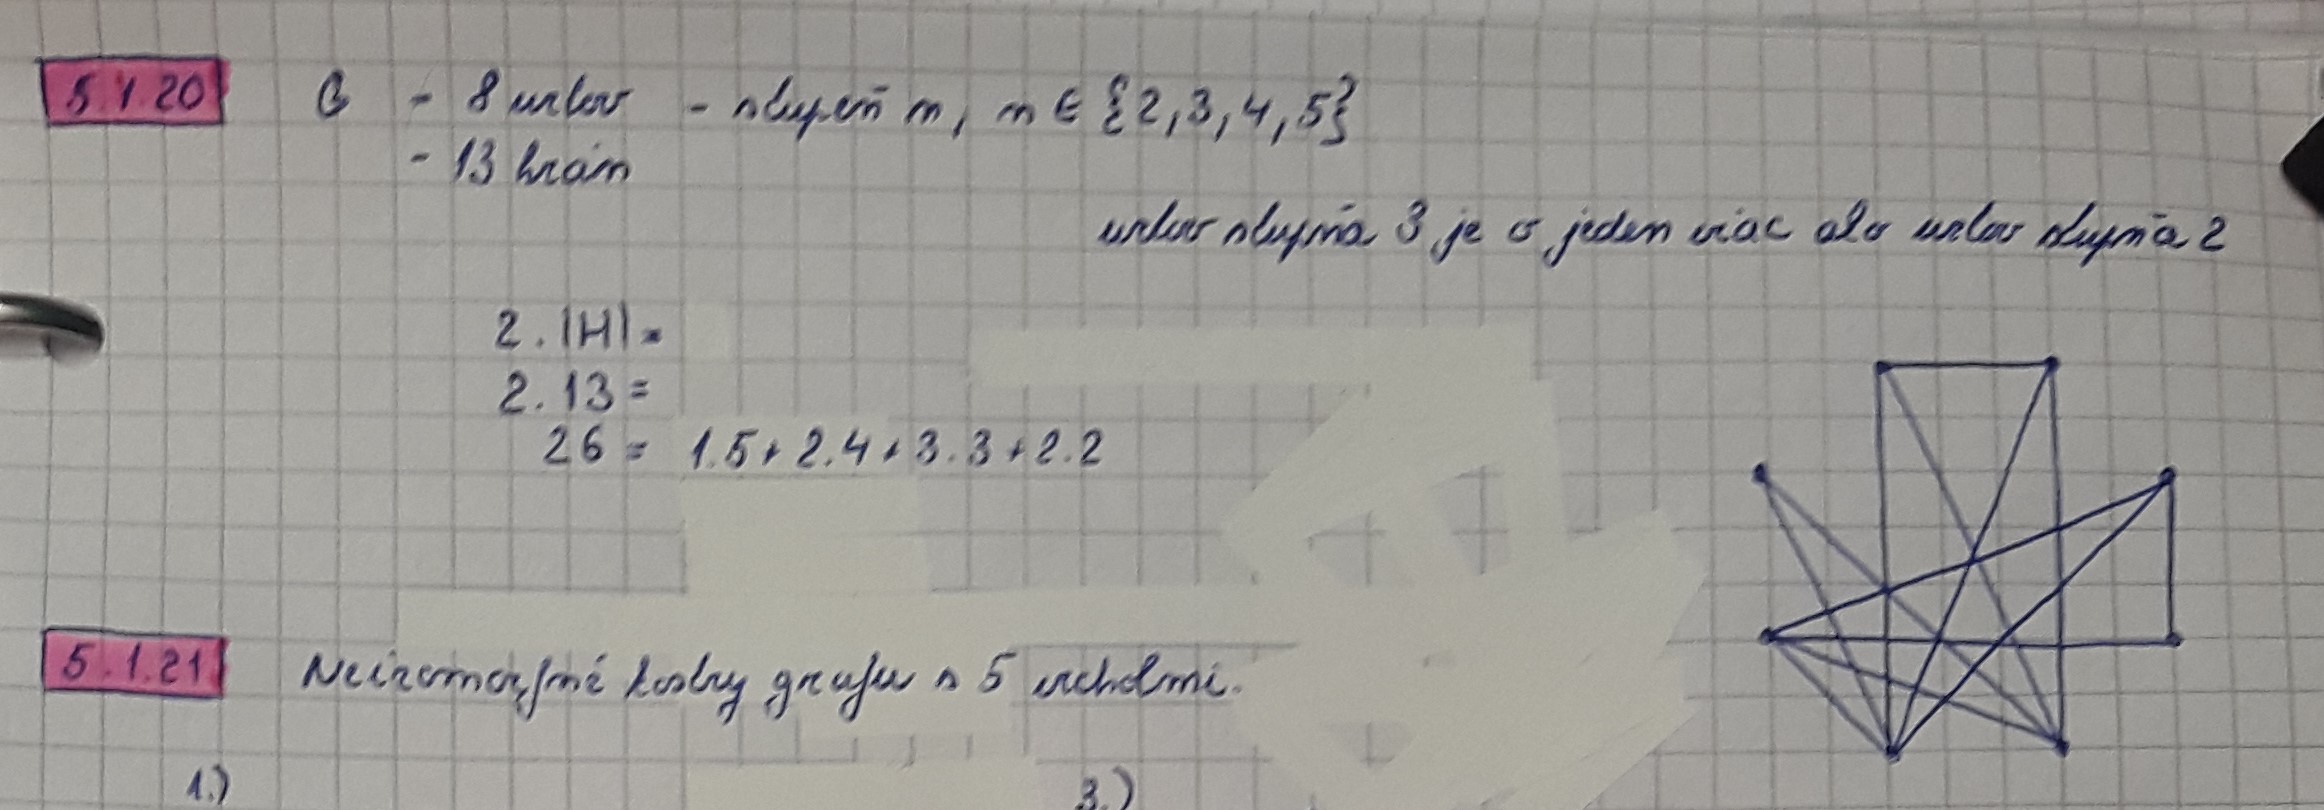 5.1.20 G - 8 vrcholov - stupeň n, n ∈ {2,3,4,5}
- 13 hrán
vrcholov stupňa 3 je o jeden viac ako vrcholov stupňa 2
2.|H| =
2.13 =
26 = 1.5 + 2.4 + 3.3 + 2.2
5.1.21 Neizomorfné kostry grafu s 5 vrcholmi.
1.) 3.)